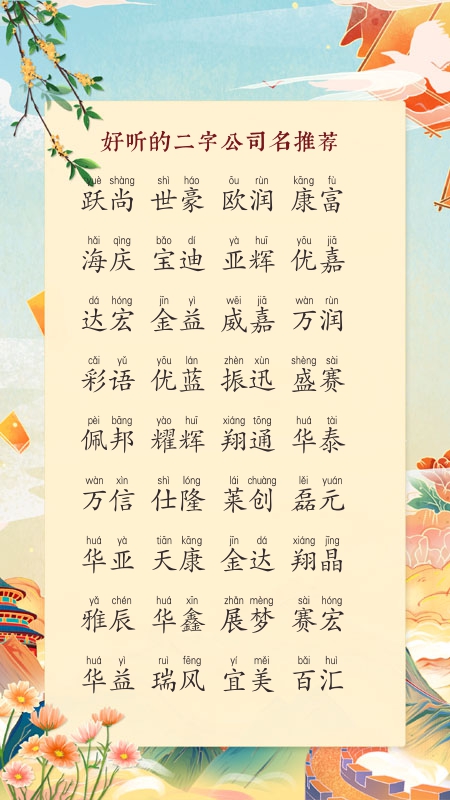 好听的二字公司名推荐
yuè shàng shì háo ōu rùn kāng fù
跃尚 世豪 欧润 康富
hǎi qìng bǎo dí yà huī yōu jiā
海庆 宝迪 亚辉 优嘉
dá hóng jīn yì wēi jiā wàn rùn
达宏 金益 威嘉 万润
cǎi yǔ yōu lán zhèn xùn shèng sài
彩语 优蓝 振迅 盛赛
pèi bāng yào huī xiáng tōng huá tài
佩邦 耀辉 翔通 华泰
wàn xìn shì lóng lái chuàng lěi yuán
万信 仕隆 莱创 磊元
huá yà tiān kāng jīn dá xiáng jīng
华亚 天康 金达 翔晶
yǎ chén huá xīn zhǎn mèng sài hóng
雅辰 华鑫 展梦 赛宏
huá yì ruì fēng yí měi bǎi huì
华益 瑞风 宜美 百汇